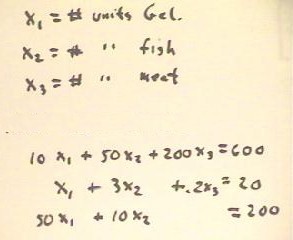 x₁ = # units Gel.
x₂ = # " fish
x₃ = # " meet
10 x₁ + 50 x₂ + 200 x₃ = 600
x₁ + 3x₂ + .2x₃ = 20
50 x₁ + 10 x₂ = 200